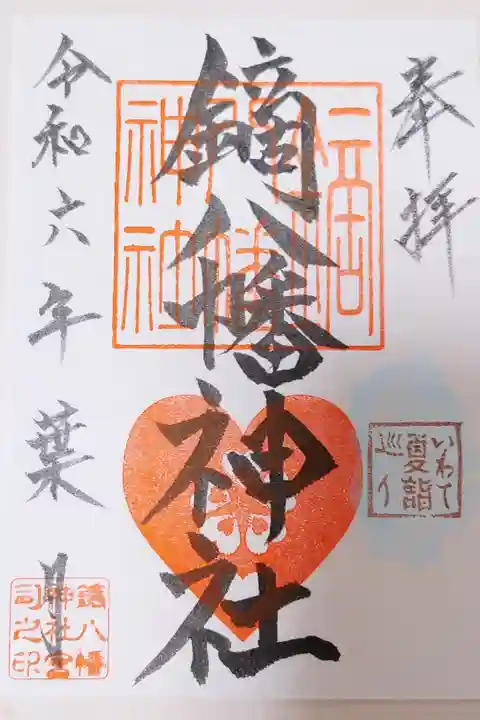 奉拝
いわて
夏詣
巡り
鏑八幡神社
神社
令和六年葉月
鏑八幡
神社宮
司之印